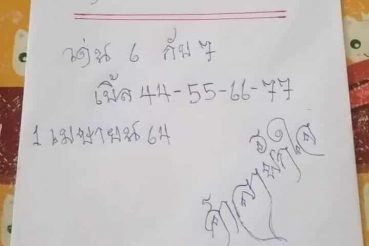 เด่น ๖ กับ ๗
เบิ้ล 44-55-66-77
1 เมษายน 64